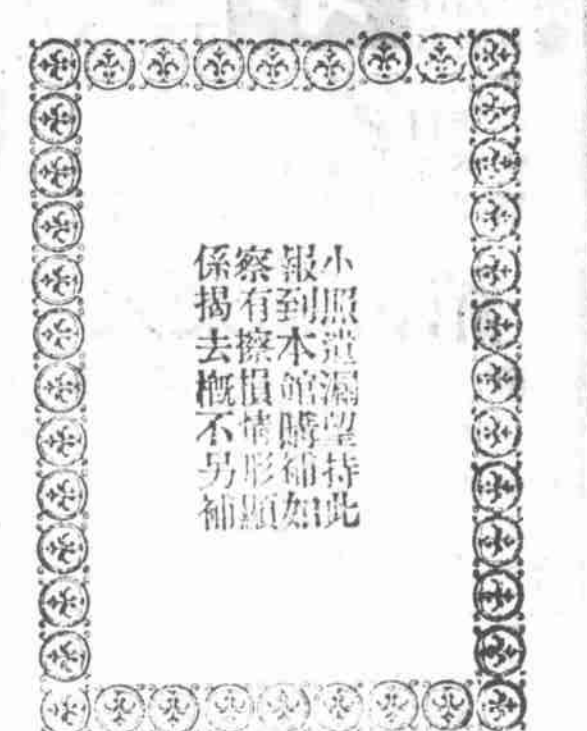 小照遺漏望持此
報到本館購補如
察有擦損情形顯
係揭去概不另補